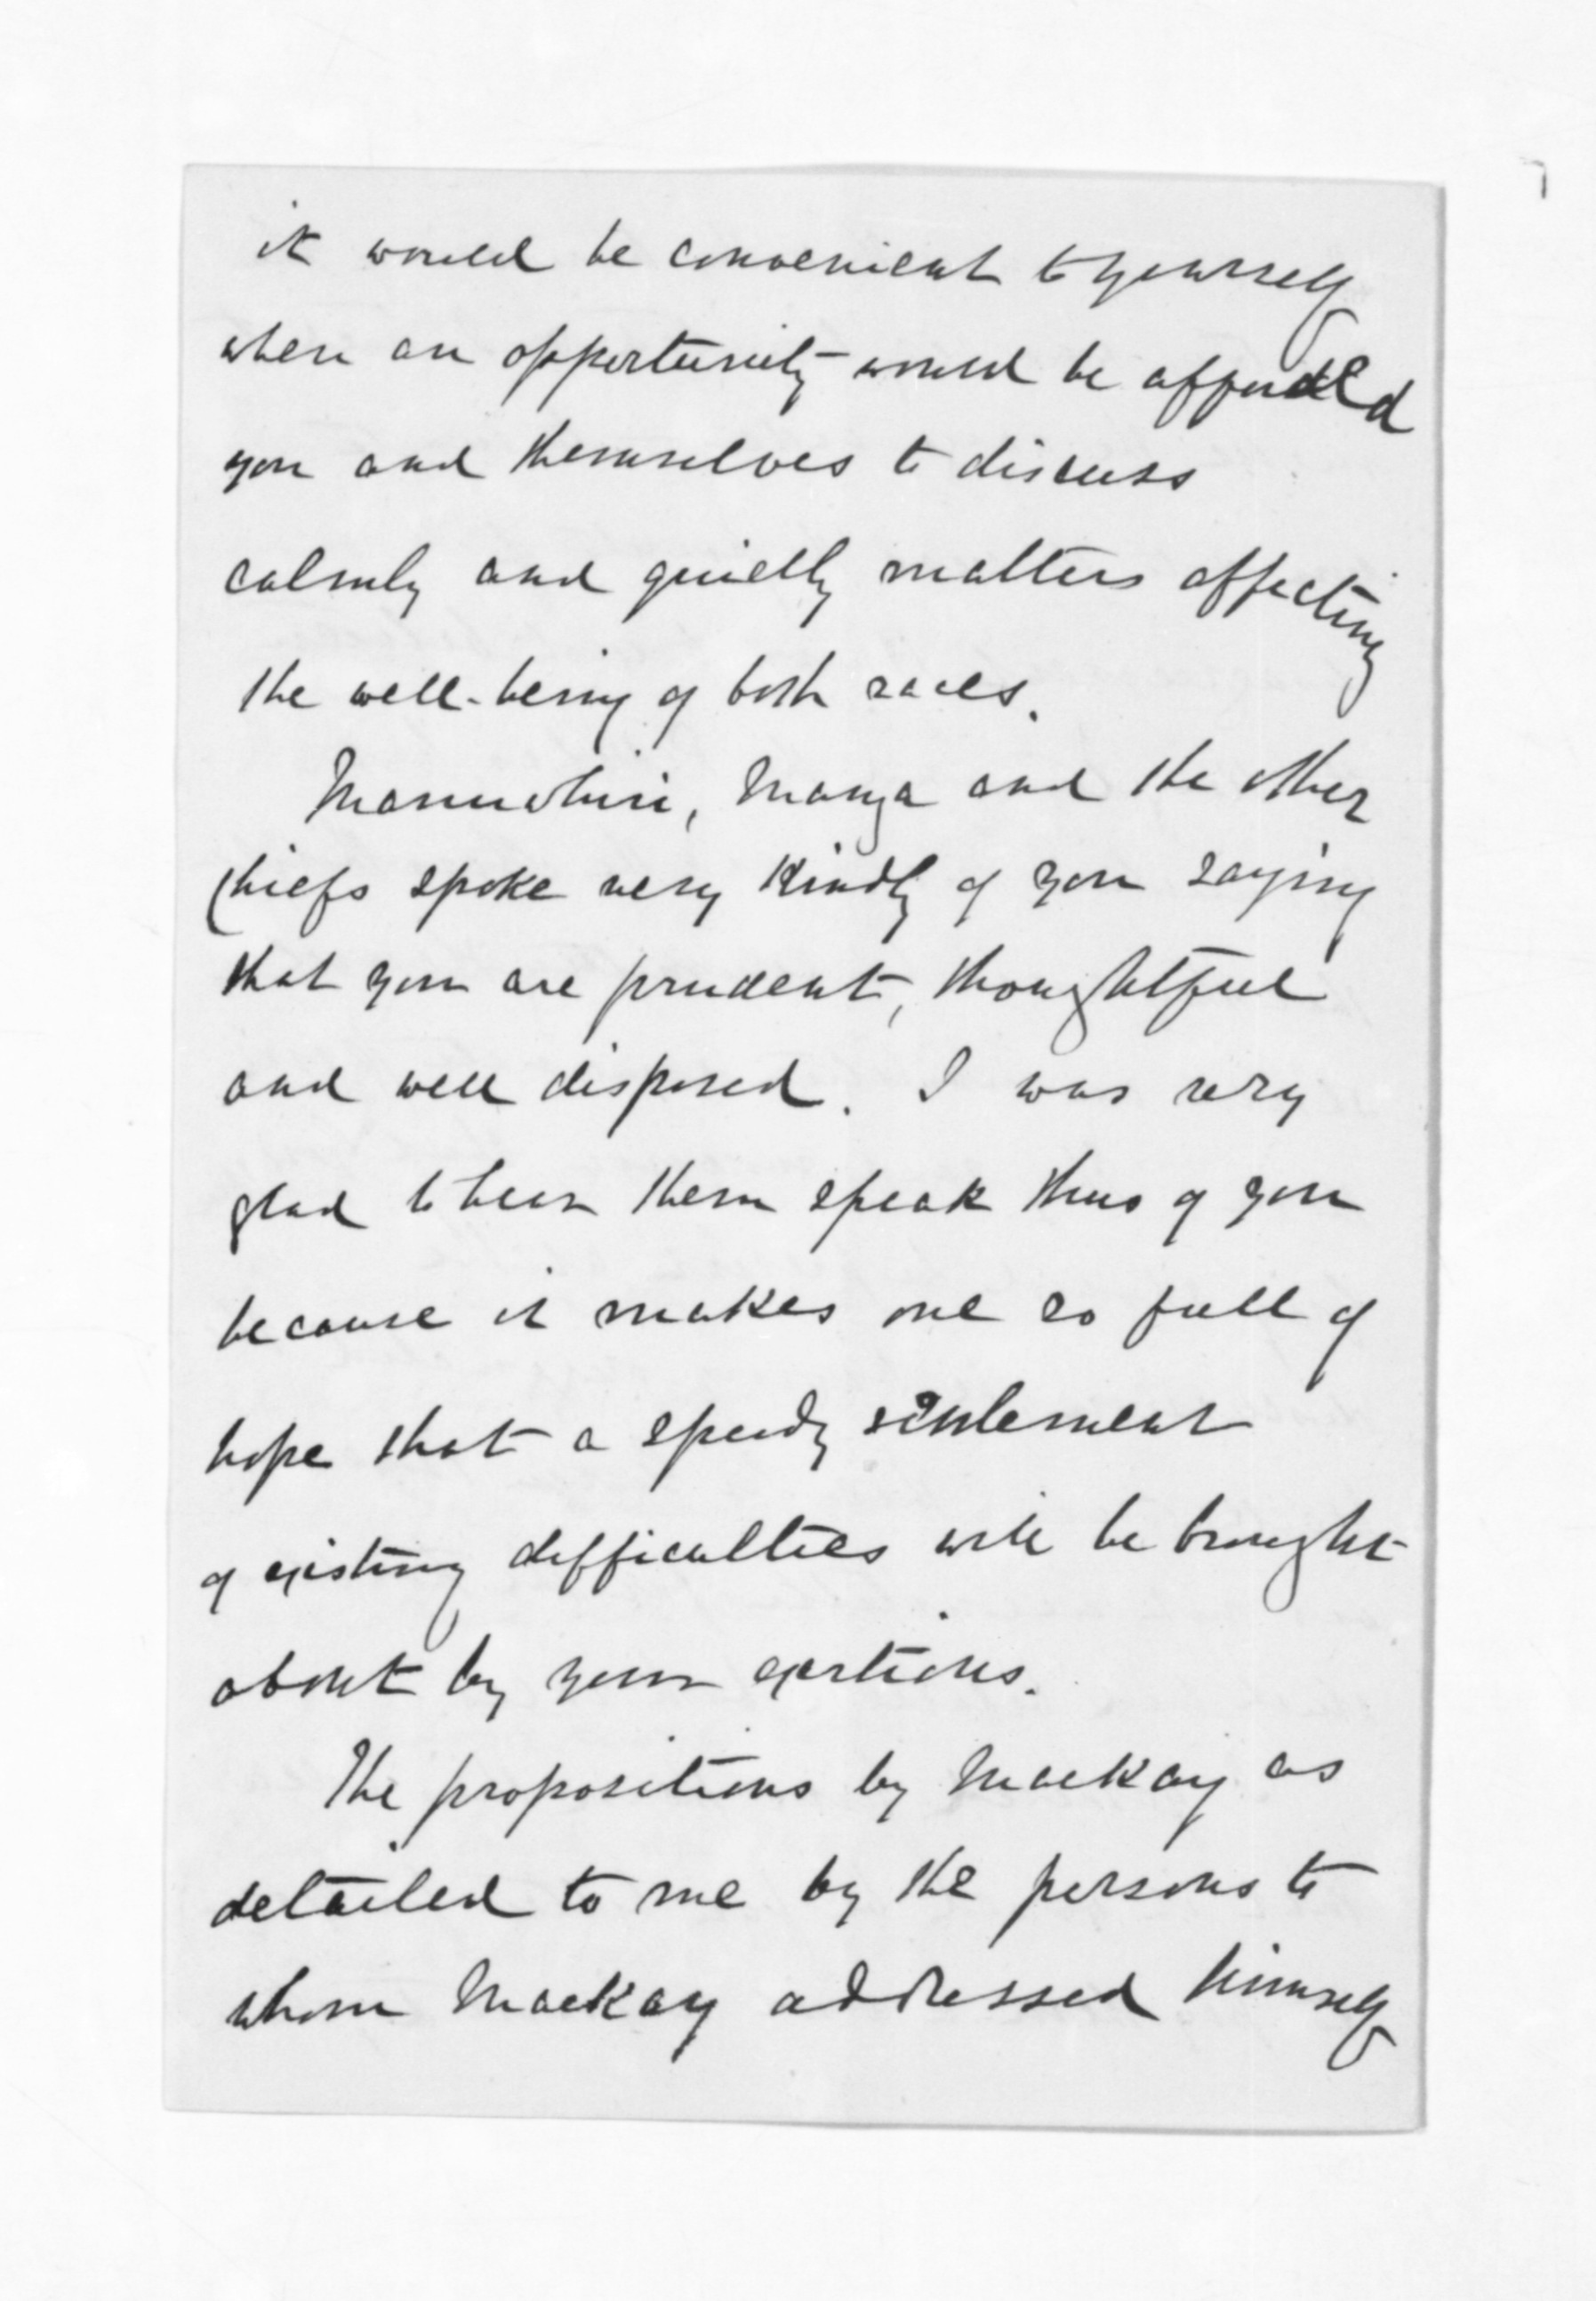 it would be convenient to yourself
when an opportunity would be afforded
you and themselves to discuss
calmly and quietly matters affecting
the well-being of both races.
Manuwhiri, Manga and the other
chiefs spoke very kindly of you saying
that you are prudent, thoughtful
and well disposed. I was very
glad to hear them speak thus of you
because it makes me so full of
hope that a speedy settlement
of existing difficulties will be brought
about by your exertions.
The propositions by Mackay as
detailed to me by the persons to
whom Mackay addressed himself